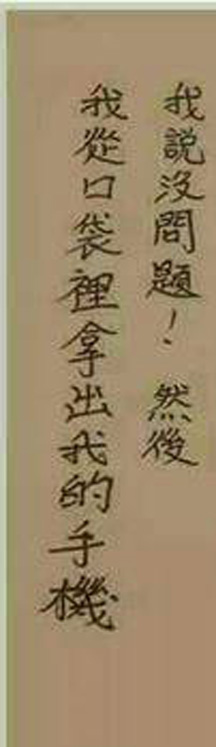 我說沒問題！然後
我從口袋裡拿出我的手機